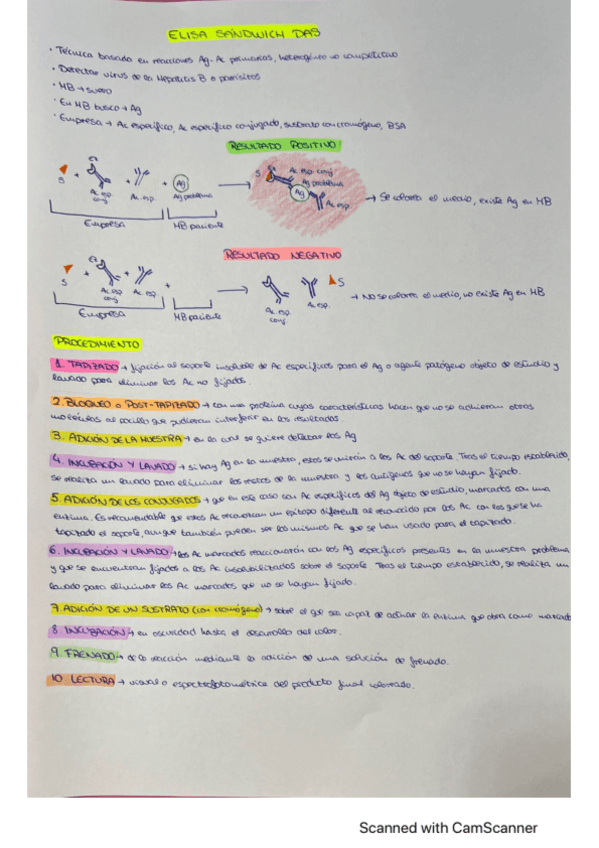 ELISA SANDWICH DAS
· Técnica basada en reacciones Ag-Ac primarias, heterogéneo no competitivo
· Detectar virus de la Hepatitis B o parásitos
· MB → suero
· En MB busco → Ag
· Empresa → Ac específico, Ac específico conjugado, sustrato con cromógeno, BSA
RESULTADO POSITIVO
S + Ac esp. conj + Ac esp. + Ag Ag problema → S Ac esp. conj Ag problema Ag Ac esp. → Se colorea el medio, existe Ag en MB
Empresa MB paciente
RESULTADO NEGATIVO
S + Ac esp. conj + Ac esp. + → Ac esp. conj Ac esp. S → No se colorea el medio, no existe Ag en MB
Empresa MB paciente
PROCEDIMIENTO
1. TAPIZADO → fijación al soporte insoluble de Ac específicos para el Ag o agente patógeno objeto de estudio y
lavado para eliminar los Ac no fijados.
2. BLOQUEO o POST-TAPIZADO → con una proteína cuyas características hacen que no se adhieran otras
moléculas al pocillo que pudieran interferir en los resultados.
3. ADICIÓN DE LA MUESTRA → en la cual se quiere detectar los Ag
4. INCUBACIÓN Y LAVADO → si hay Ag en la muestra, estos se unirán a los Ac del soporte. Tras el tiempo establecido,
se realiza un lavado para eliminar los restos de la muestra y los antígenos que no se hayan fijado.
5. ADICIÓN DE LOS CONJUGADOS → que en este caso son Ac específicos del Ag objeto de estudio, marcados con una
enzima. Es recomendable que estos Ac reconozcan un epítopo diferente al reconocido por los Ac con los que se ha
tapizado el soporte, aunque también pueden ser los mismos Ac que se han usado para el tapizado.
6. INCUBACIÓN Y LAVADO → los Ac marcados reaccionarán con los Ag específicos presentes en la muestra problema
y que se encuentran fijados a los Ac insolubilizados sobre el soporte. Tras el tiempo establecido, se realiza un
lavado para eliminar los Ac marcados que no se hayan fijado.
7. ADICIÓN DE UN SUSTRATO (con cromógeno) → sobre el que sea capaz de actuar la enzima que obra como marcado
8. INCUBACIÓN → en oscuridad hasta el desarrollo del color.
9. FRENADO → de la reacción mediante la adición de una solución de frenado.
10. LECTURA → visual o espectrofotométrica del producto final coloreado.
Scanned with CamScanner